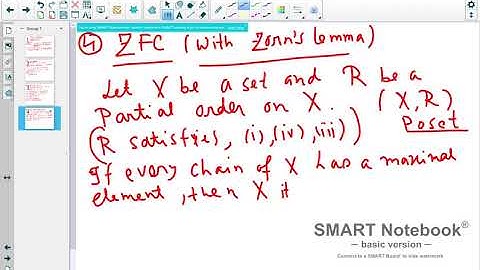 ④ ZFC (with Zorn's lemma)
Let X be a set and R be a
Partial order on X. (X, R)
(R satisfies, (i), (iv), (iii)) Poset
If every chain of X has a maximal
element, then X it
SMART Notebook®
– basic version –